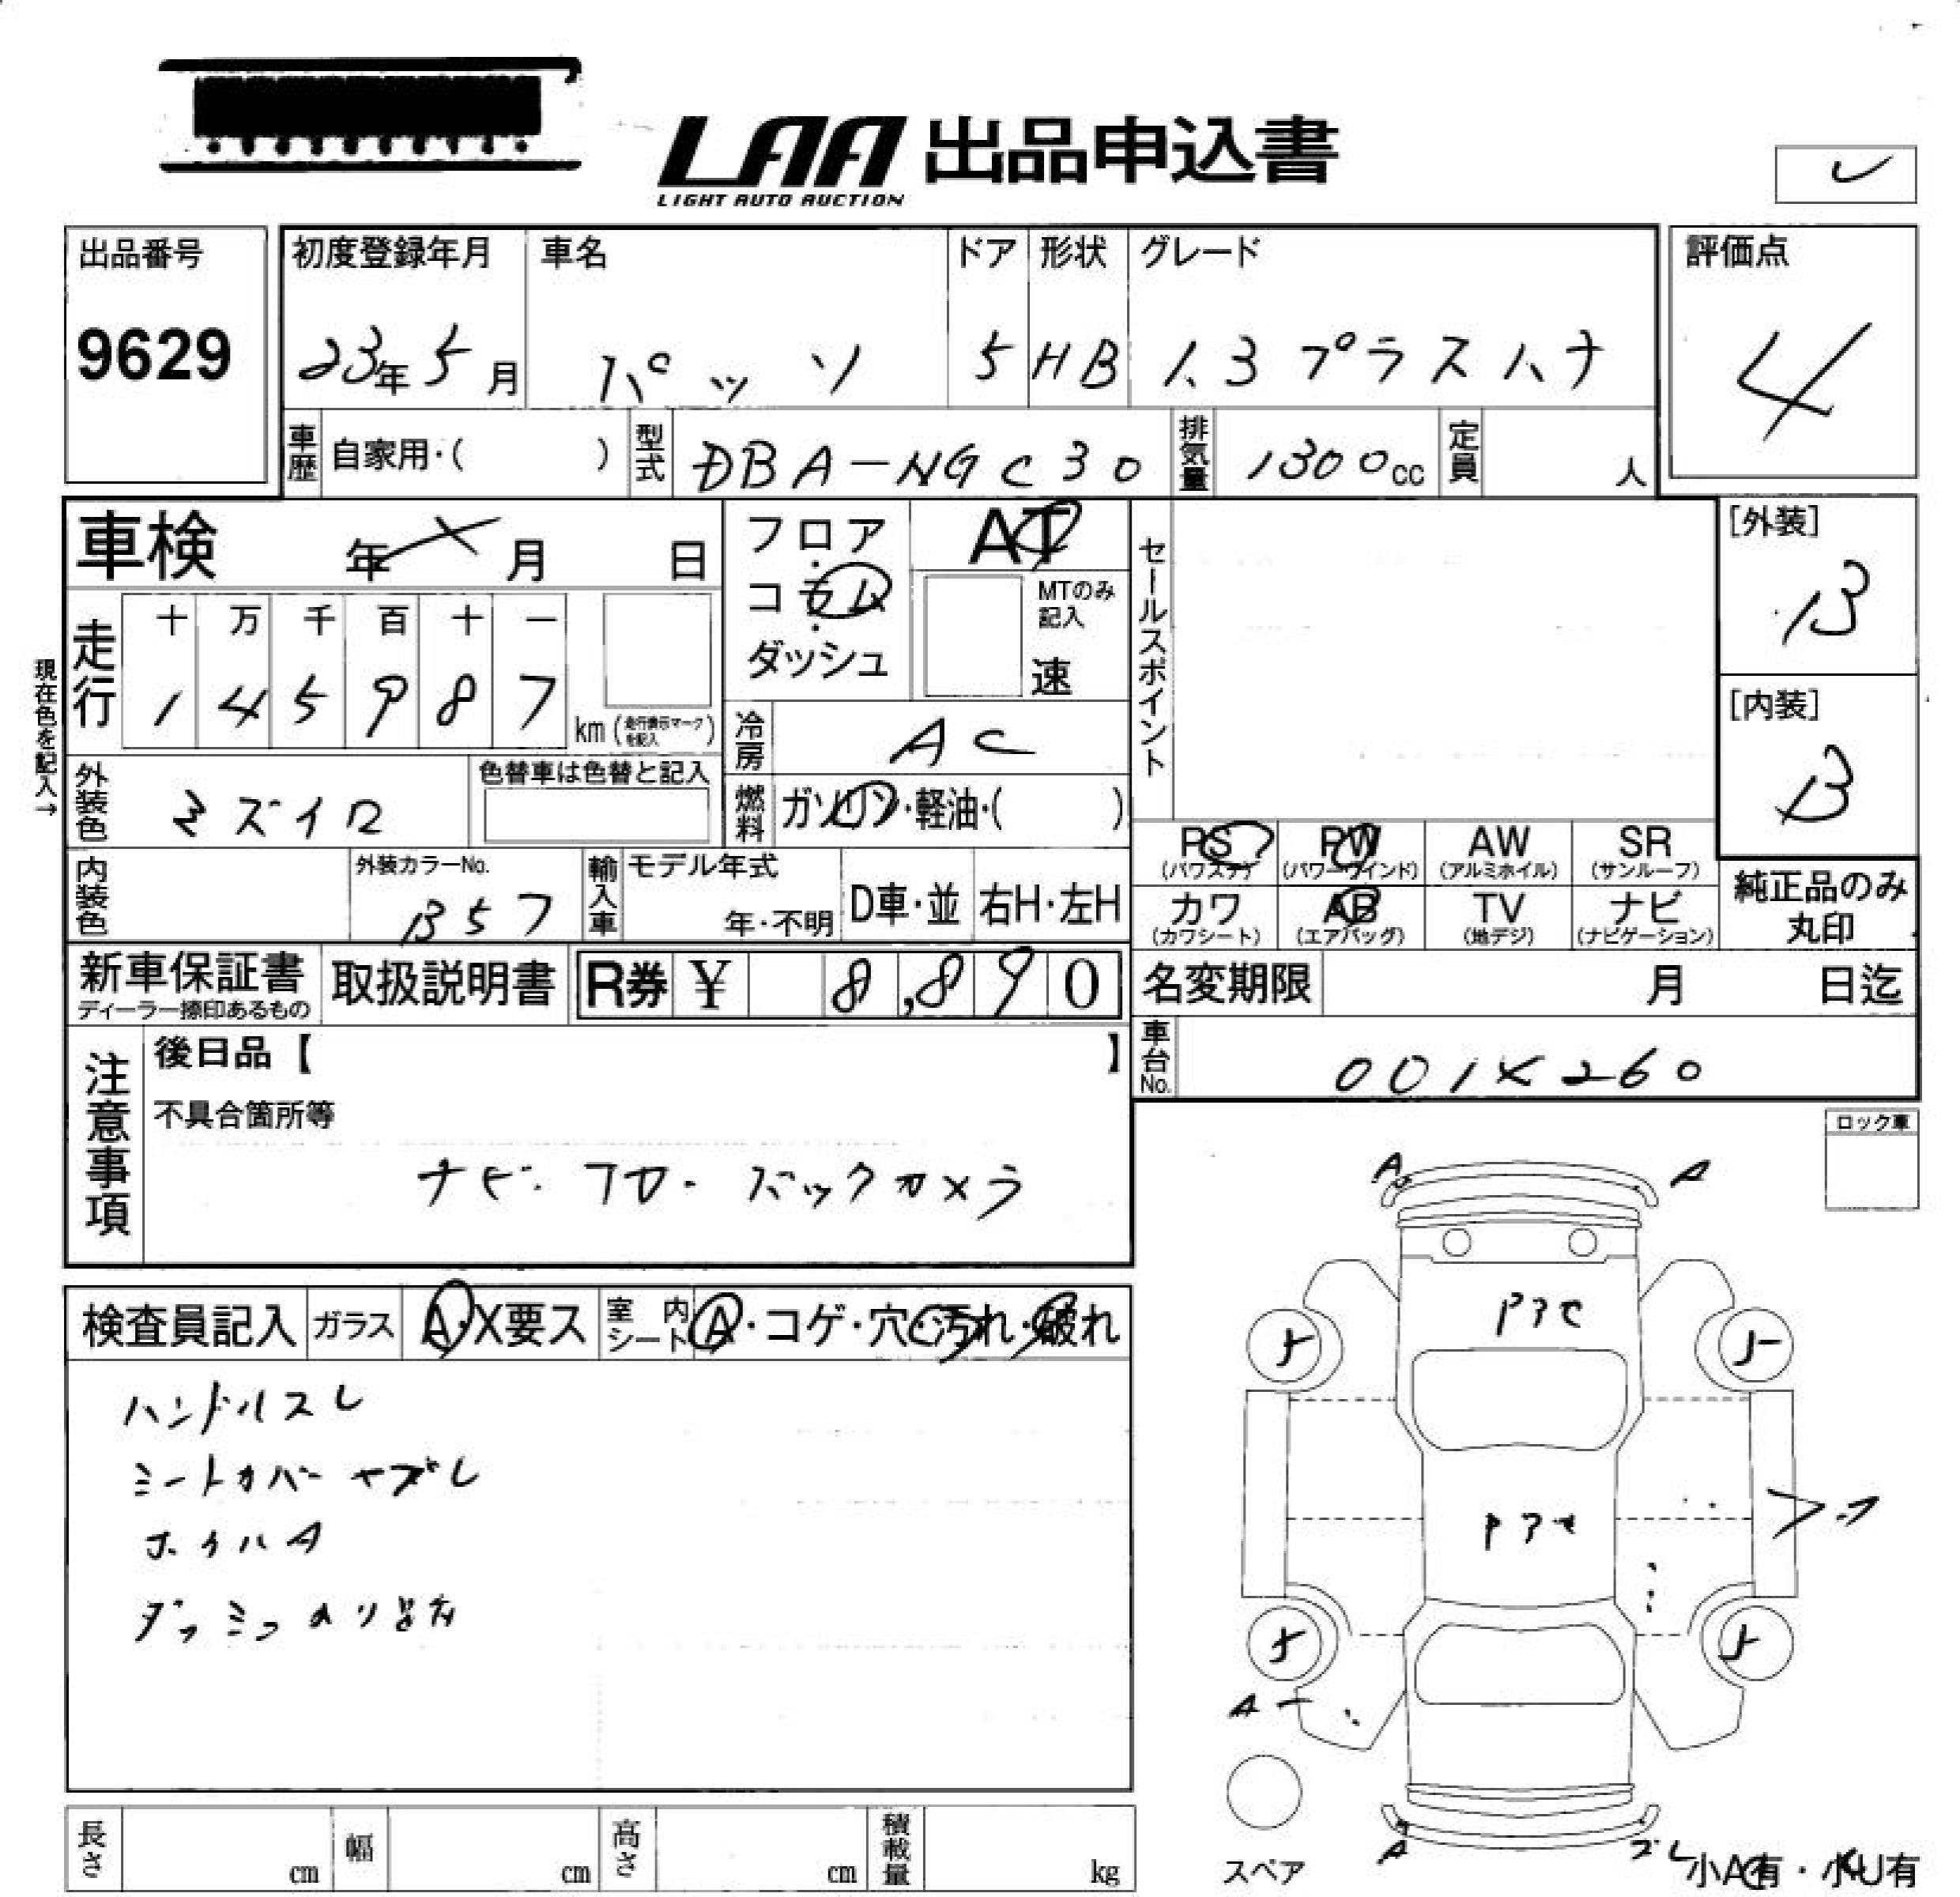 LAA 出品申込書
LIGHT AUTO AUCTION
レ
出品番号
9629
初度登録年月
23年5月
車名
パッソ
ドア
5
形状
HB
グレード
1.3 プラスハナ
評価点
4
車歴 自家用・( )
型式 DBA-NGC30
排気量 1300cc
定員 人
車検 年 月 日
フロア・コラム・ダッシュ
AT
MTのみ記入
速
セールスポイント
[外装]
B
現在色を記入→
走行
十 万 千 百 十 一
1 4 5 9 8 7
km (走行表示マークを記入)
[内装]
B
冷房 AC
外装色 ミズイロ
色替車は色替と記入
燃料 ガソリン・軽油・( )
PS (パワステ)
PW (パワーウインド)
AW (アルミホイル)
SR (サンルーフ)
カワ (カワシート)
AB (エアバッグ)
TV (地デジ)
ナビ (ナビゲーション)
純正品のみ
丸印
内装色
外装カラーNo.
B57
輸入車
モデル年式
年・不明
D車・並
右H・左H
新車保証書
ディーラー捺印あるもの
取扱説明書
R券 ¥ 8,890
名変期限 月 日迄
車台No.
注意事項
後日品【 】
不具合箇所等
ナビ・フロ・バックカメラ
ロック車
検査員記入
ガラス A・X要ス
室内シート A・コゲ・穴・汚れ・破れ
ハンドルスレ
シートカバーヤブレ
ホイルA
A
A
A
A
スペア
小A有・小U有
長さ cm
幅 cm
高さ cm
積載量 kg